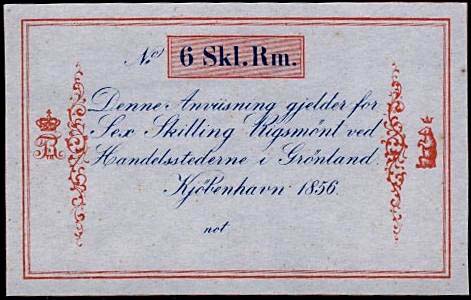 No 6 Skl. Rm.
Denne Anviisning gjelder for
Sex Skilling Rigsmönt ved
Handelsstederne i Grönland.
Kjöbenhavn 1856.
not